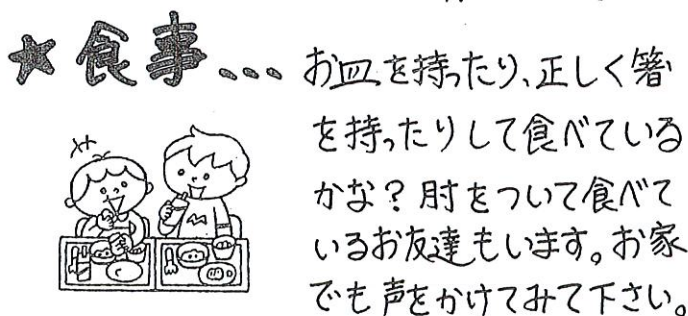 ★食事... お皿を持ったり、正しく箸
を持ったりして食べている
かな？肘をついて食べて
いるお友達もいます。お家
でも声をかけてみて下さい。